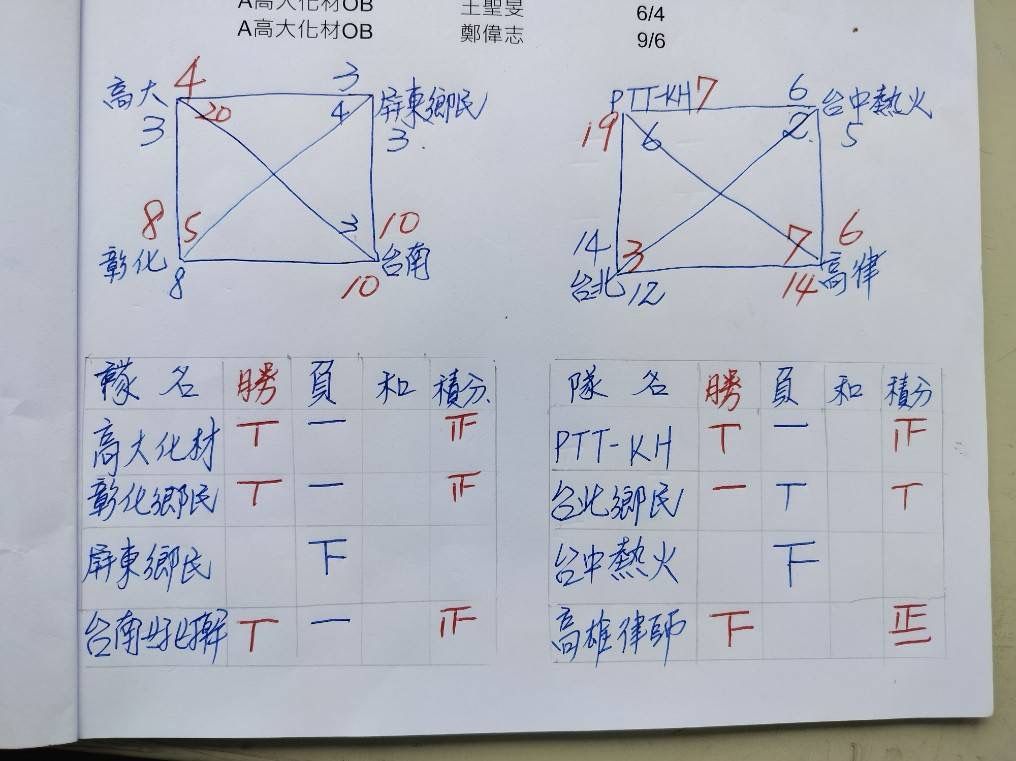 A高大化材OB 王聖旻 6/4
A高大化材OB 鄭偉志 9/6
高大 4 3 屏東鄉民
20 4
3 3.
8 5 3 10
彰化 台南
8 10
PTT-KH 7 6 台中熱火
19 6 2 5
14 3 7 6
台北 12 14 高律
隊名 勝 負 和 積分
高大化材 丅 一 正
彰化鄉民 丅 一 正
屏東鄉民 下
台南 丅 一 正
隊名 勝 負 和 積分
PTT-KH 丅 一 正
台北鄉民 一 丅 丅
台中熱火 下
高雄律師 下